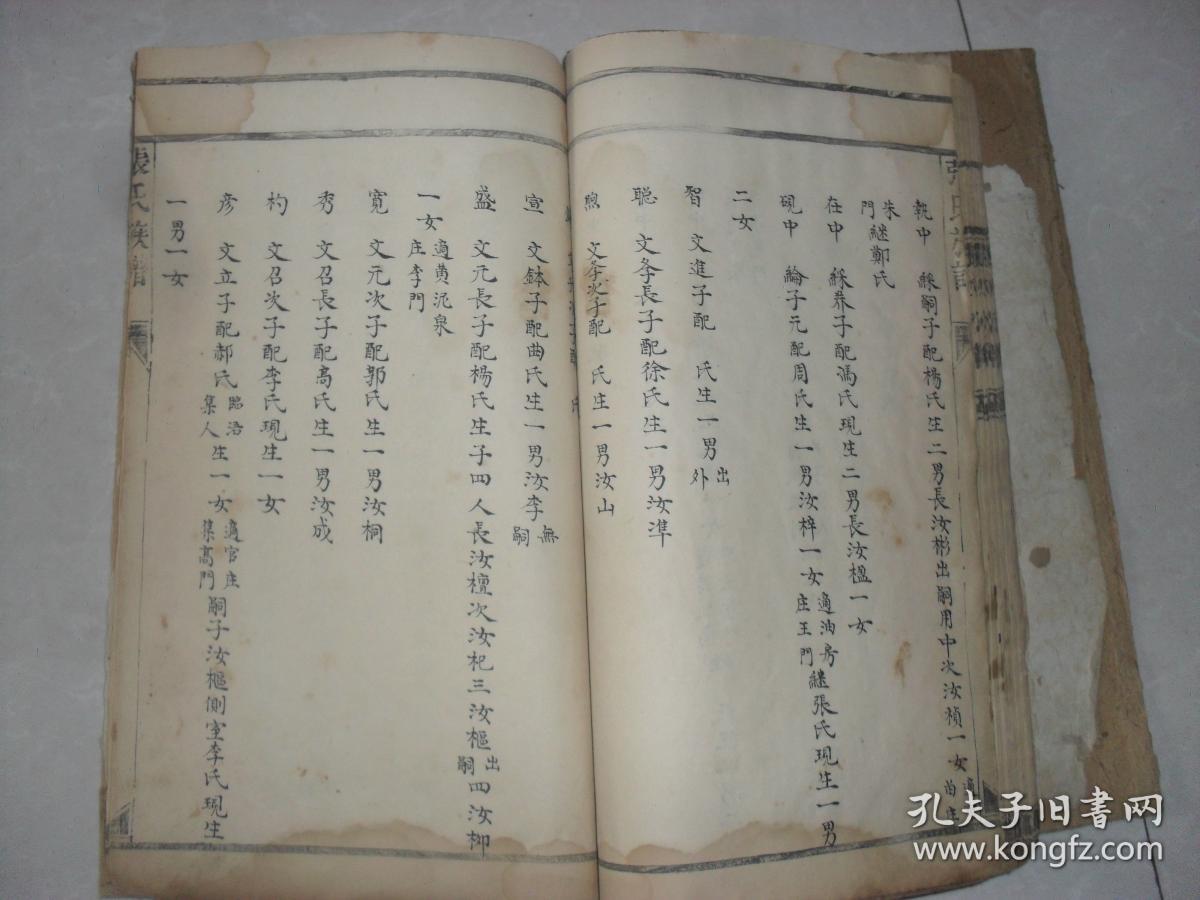 執中 綵嗣子配楊氏生二男長汝彬出嗣用中次汝楨一女適
朱門繼鄭氏
在中 綵養子配馮氏現生二男長汝楹一女
硯中 綸子元配周氏生一男汝梓一女適油房庄王門繼張氏現生一男
二女
智 文進子配 氏生一男出外
聡 文夆長子配徐氏生一男汝準
煦 文夆次子配 氏生一男汝山
宣 文鉢子配曲氏生一男汝李無嗣
盛 文元長子配楊氏生子四人長汝檀次汝杞三汝樞出嗣四汝柳
一女適黄泥泉庄李門
寛 文元次子配郭氏生一男汝桐
秀 文召長子配高氏生一男汝成
杓 文召次子配李氏現生一女
彦 文立子配郝氏臨治集人生一女適官庄集高門嗣子汝樞側室李氏現生
一男一女
張氏族譜
孔夫子旧書网
www.kongfz.com